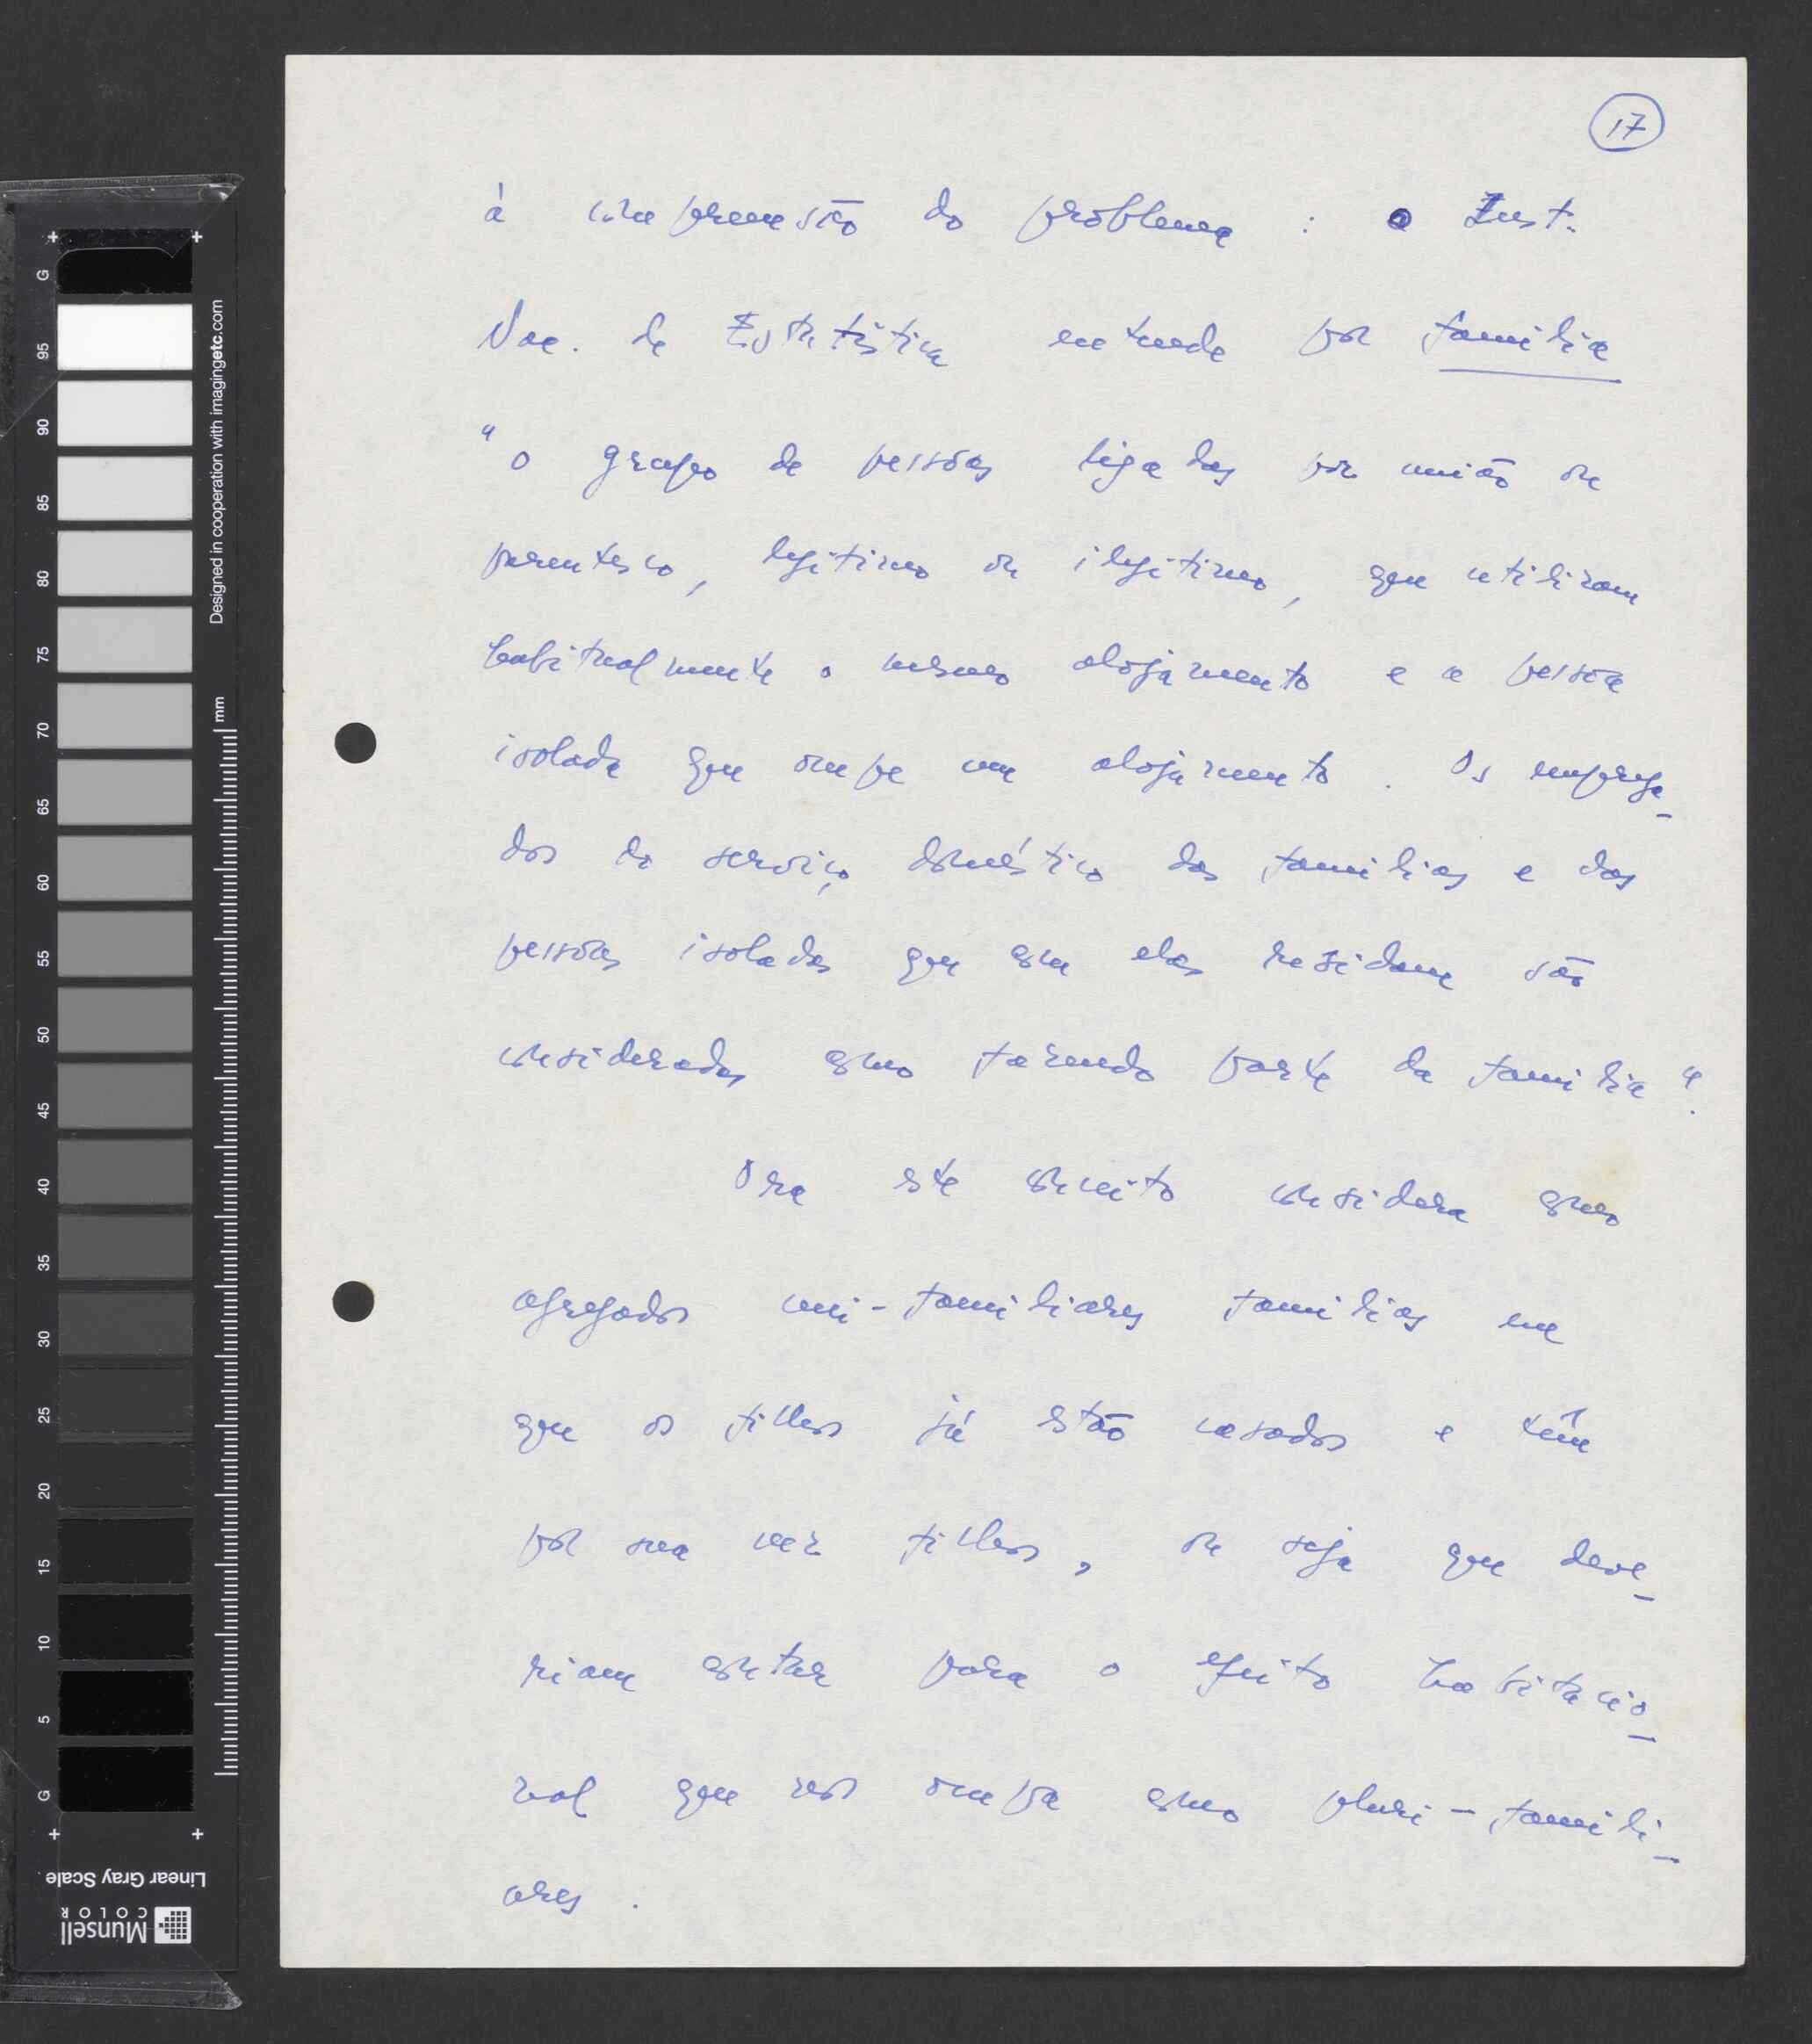 17
à compreensão do problema : o Inst.
Nac. de Estatística entende por familia
"o grupo de pessoas ligadas por união ou
parentesco, legitimo ou ilegitimo, que utilizam
habitualmente o mesmo alojamento e a pessoa
isolada que ocupe um alojamento. Os emprega-
dos do serviço doméstico das familias e das
pessoas isoladas que com elas residam são
considerados como fazendo parte da familia".
Ora este conceito considera como
agregados uni-familiares familias em
que os filhos já estão casados e têm
por sua vez filhos, ou seja que deve-
riam contar para o efeito habitacio-
nal que nos ocupa como pluri-famili-
ares.
G 95 90 85 80 75 70 65 60 55 50 45 40 35 30 25 20 15 10 5 G
Designed in cooperation with imagingetc.com
mm
Linear Gray Scale
Munsell
COLOR